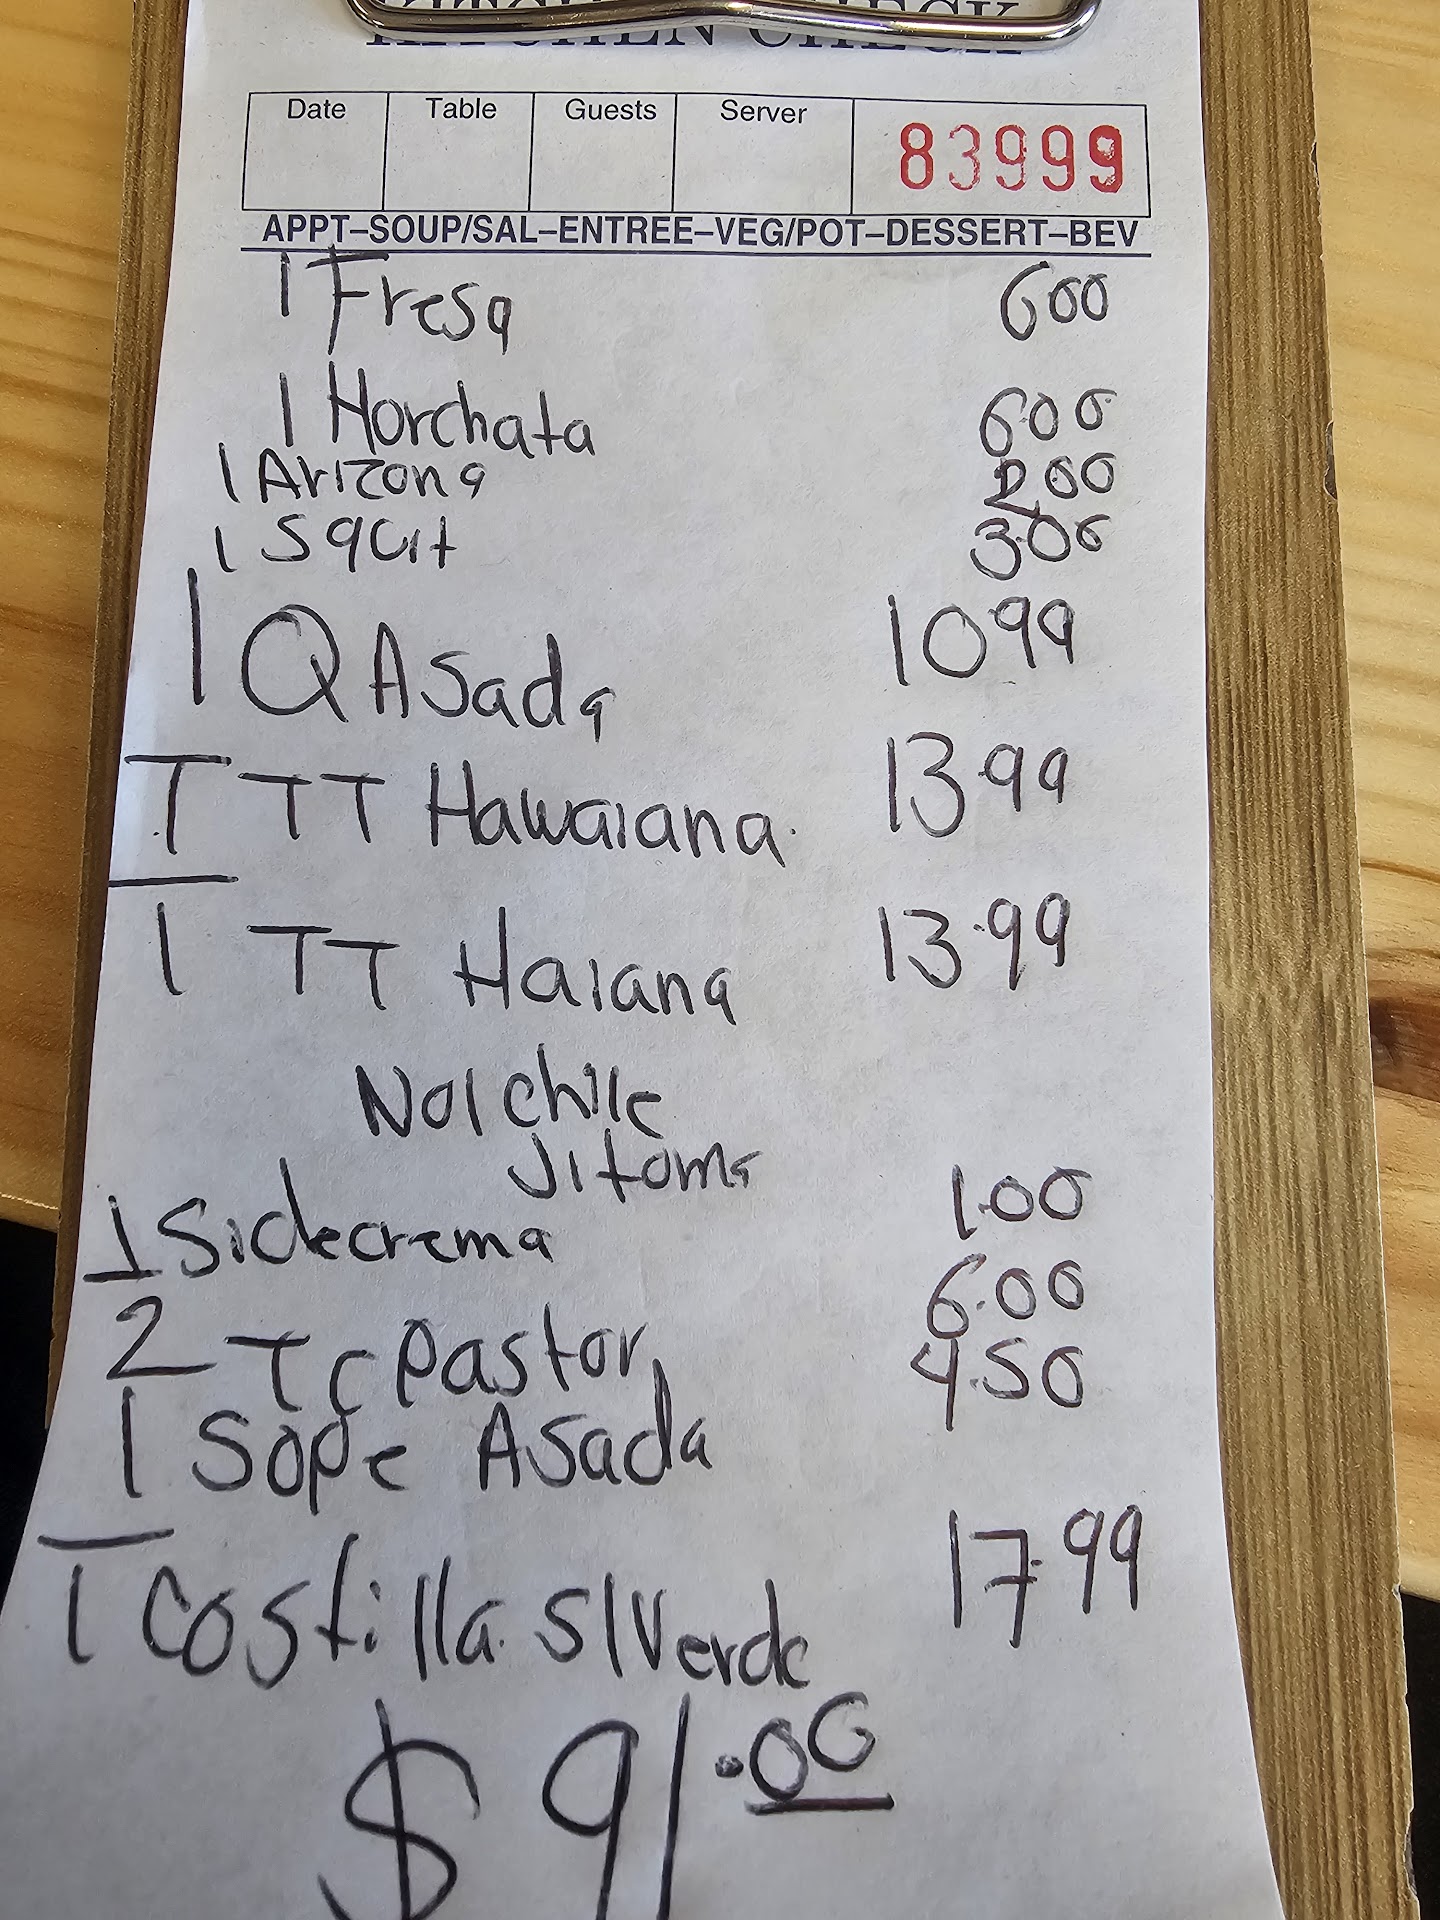 KITCHEN CHECK
Date Table Guests Server 83999
APPT–SOUP/SAL–ENTREE–VEG/POT–DESSERT–BEV
1 Fresa 600
1 Horchata 6.00
1 Arizona 2.00
1 Squit 3.00
1 Q Asada 10.99
1 TT Hawaiana. 13.99
1 TT Haiana 13.99
No/chile
Jitoma
1 Sidecrema 1.00
2 Tc Pastor 6.00
1 Sope Asada 4.50
1 Costilla S/Verde 17.99
$91.00